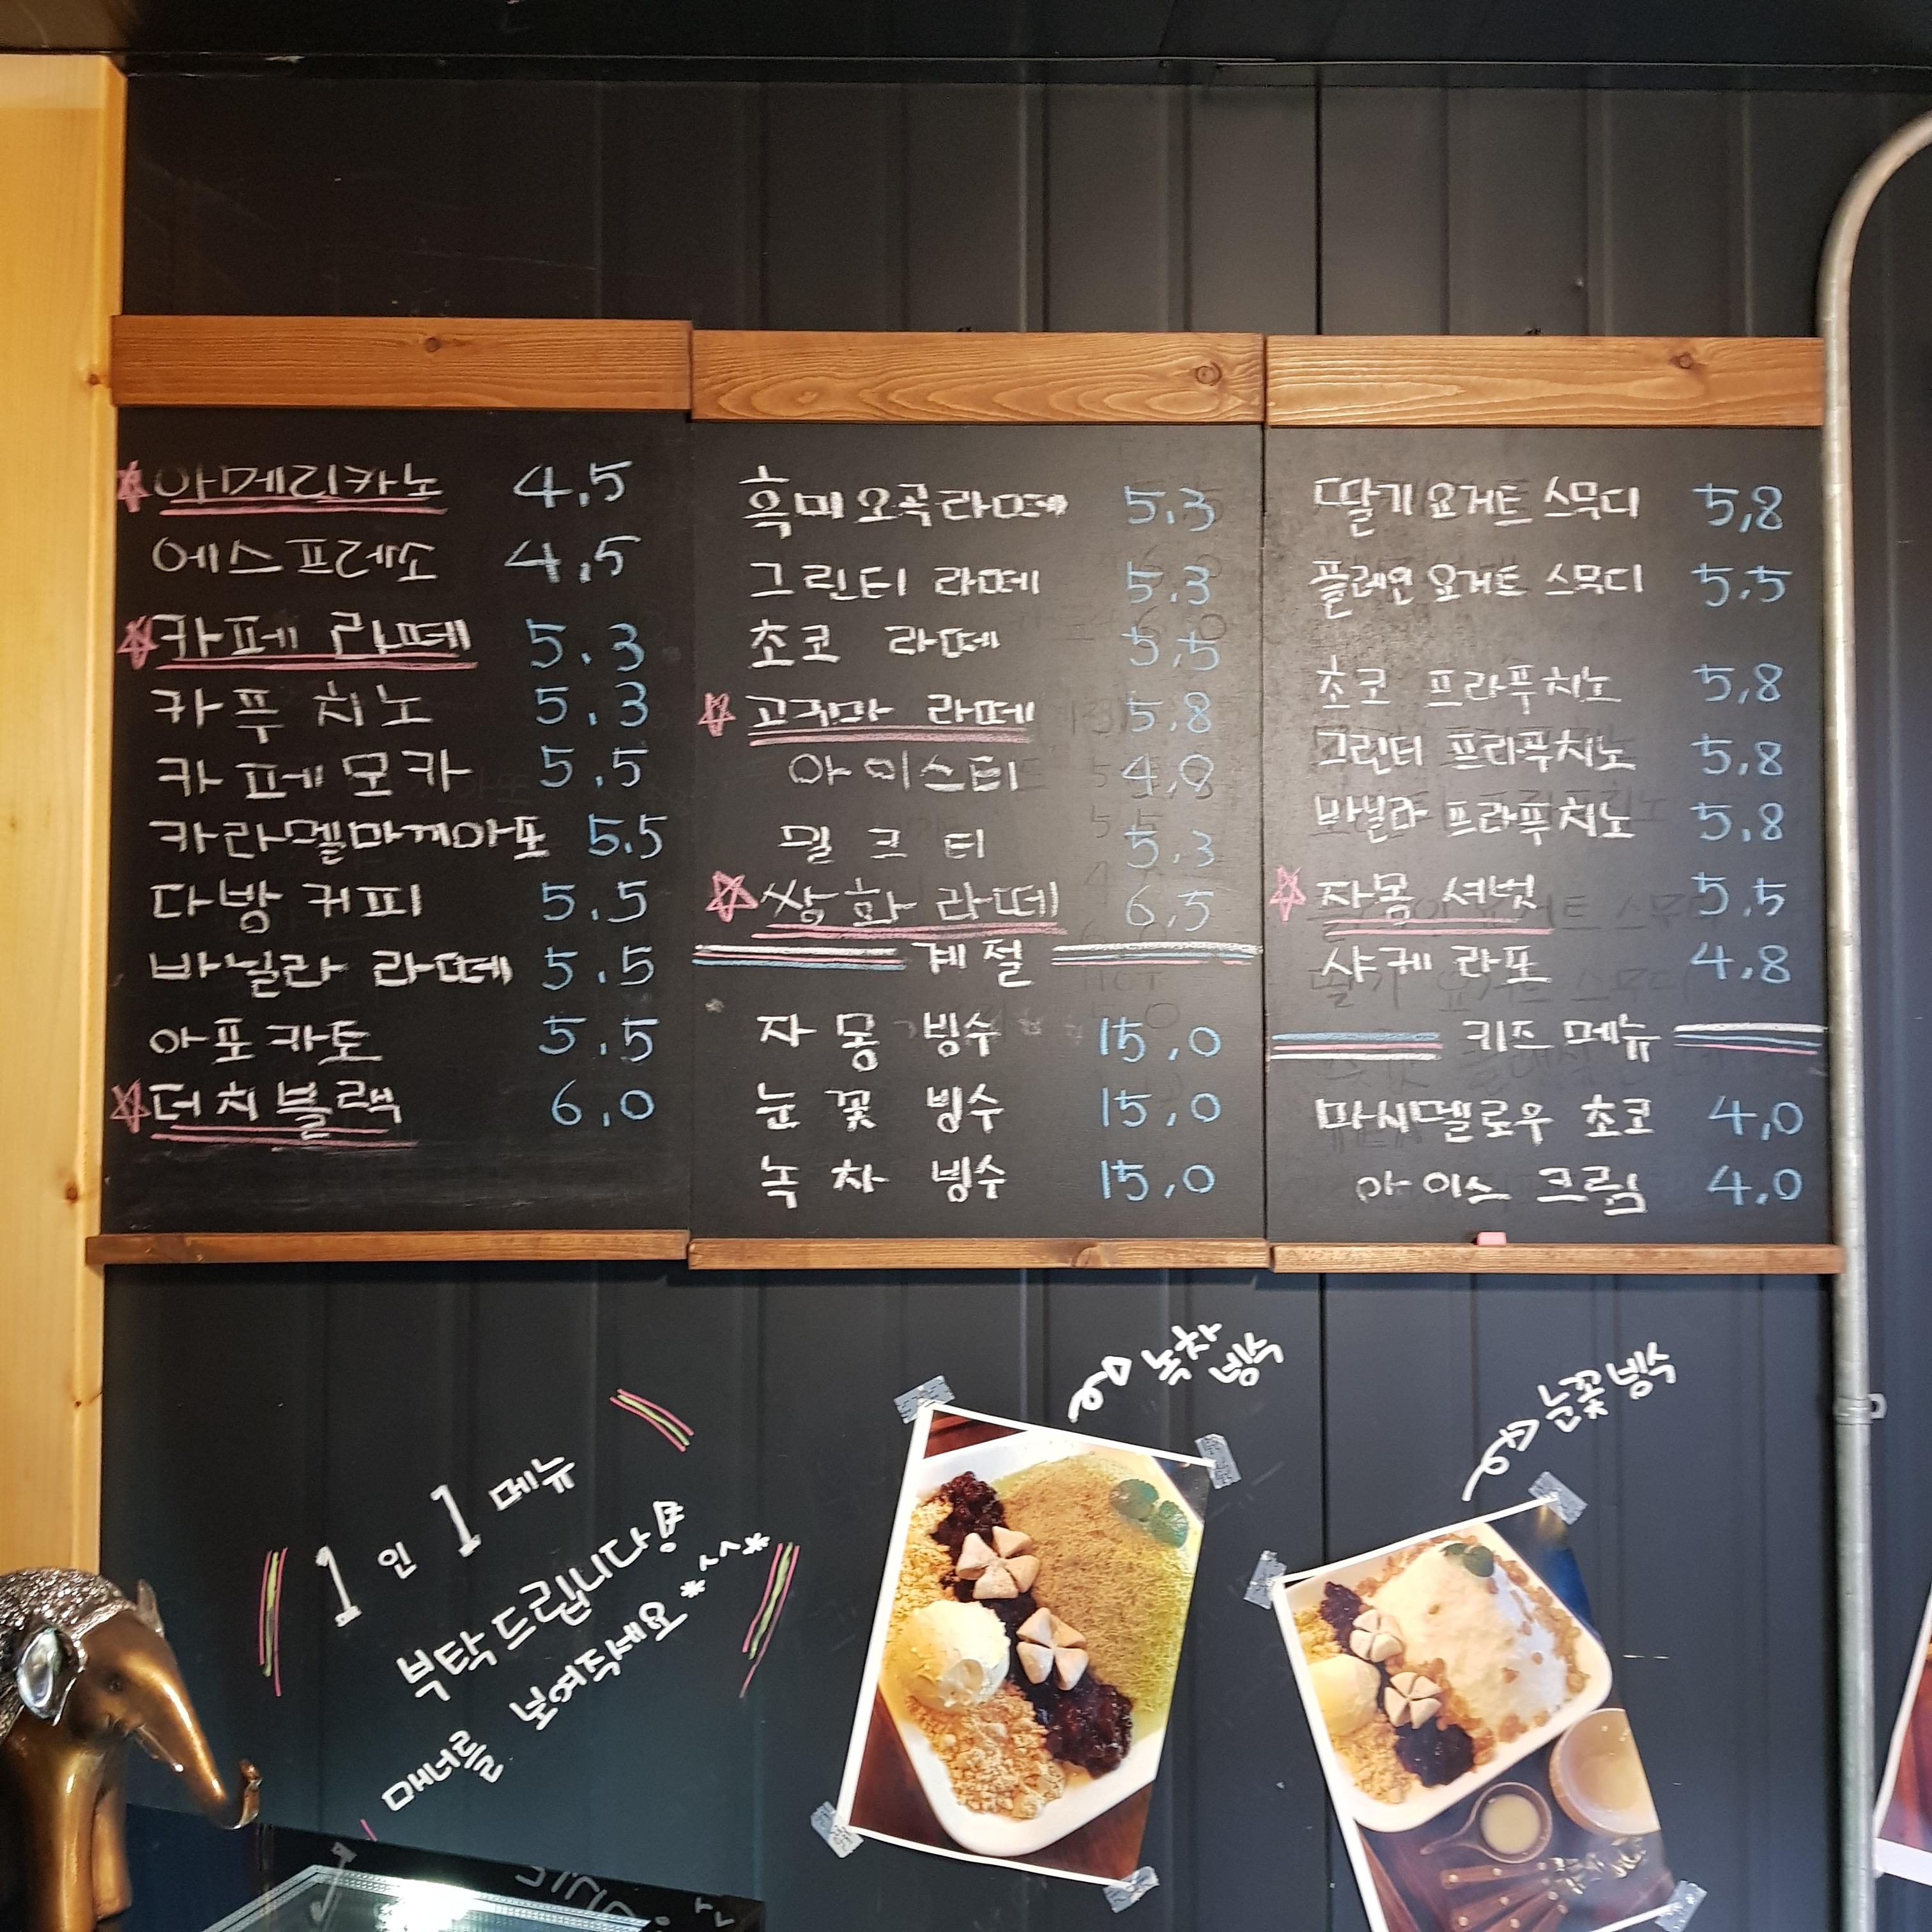 ☆아메리카노 4,5
에스프레소 4,5
☆카페 라떼 5.3
카푸치노 5.3
카페모카 5.5
카라멜마끼아또 5.5
다방 커피 5.5
바닐라 라떼 5.5
아포카토 5.5
☆더치블랙 6,0
흑미오곡라떼 5.3
그린티 라떼 5.3
초코 라떼 5,5
☆고구마 라떼 5,8
아이스티 4,8
밀크티 5,3
☆쌍화라떼 6,5
계절
자몽 빙수 15,0
눈꽃 빙수 15,0
녹차 빙수 15,0
딸기요거트 스무디 5,8
플레인 요거트 스무디 5.5
초코 프라푸치노 5,8
그린티 프라푸치노 5,8
바닐라 프라푸치노 5,8
☆자몽 셔벗 5,5
샤케라또 4,8
키즈 메뉴
마시멜로우 초코 4,0
아이스 크림 4,0
녹차빙수
눈꽃빙수
1인 1메뉴
부탁드립니다!
매너를 보여주세요*^^*